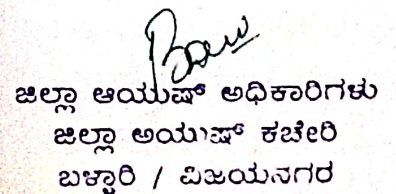 ಜಿಲ್ಲಾ ಆಯುಷ್ ಅಧಿಕಾರಿಗಳು
ಜಿಲ್ಲಾ ಅಯುಷ್ ಕಚೇರಿ
ಬಳ್ಳಾರಿ / ವಿಜಯನಗರ